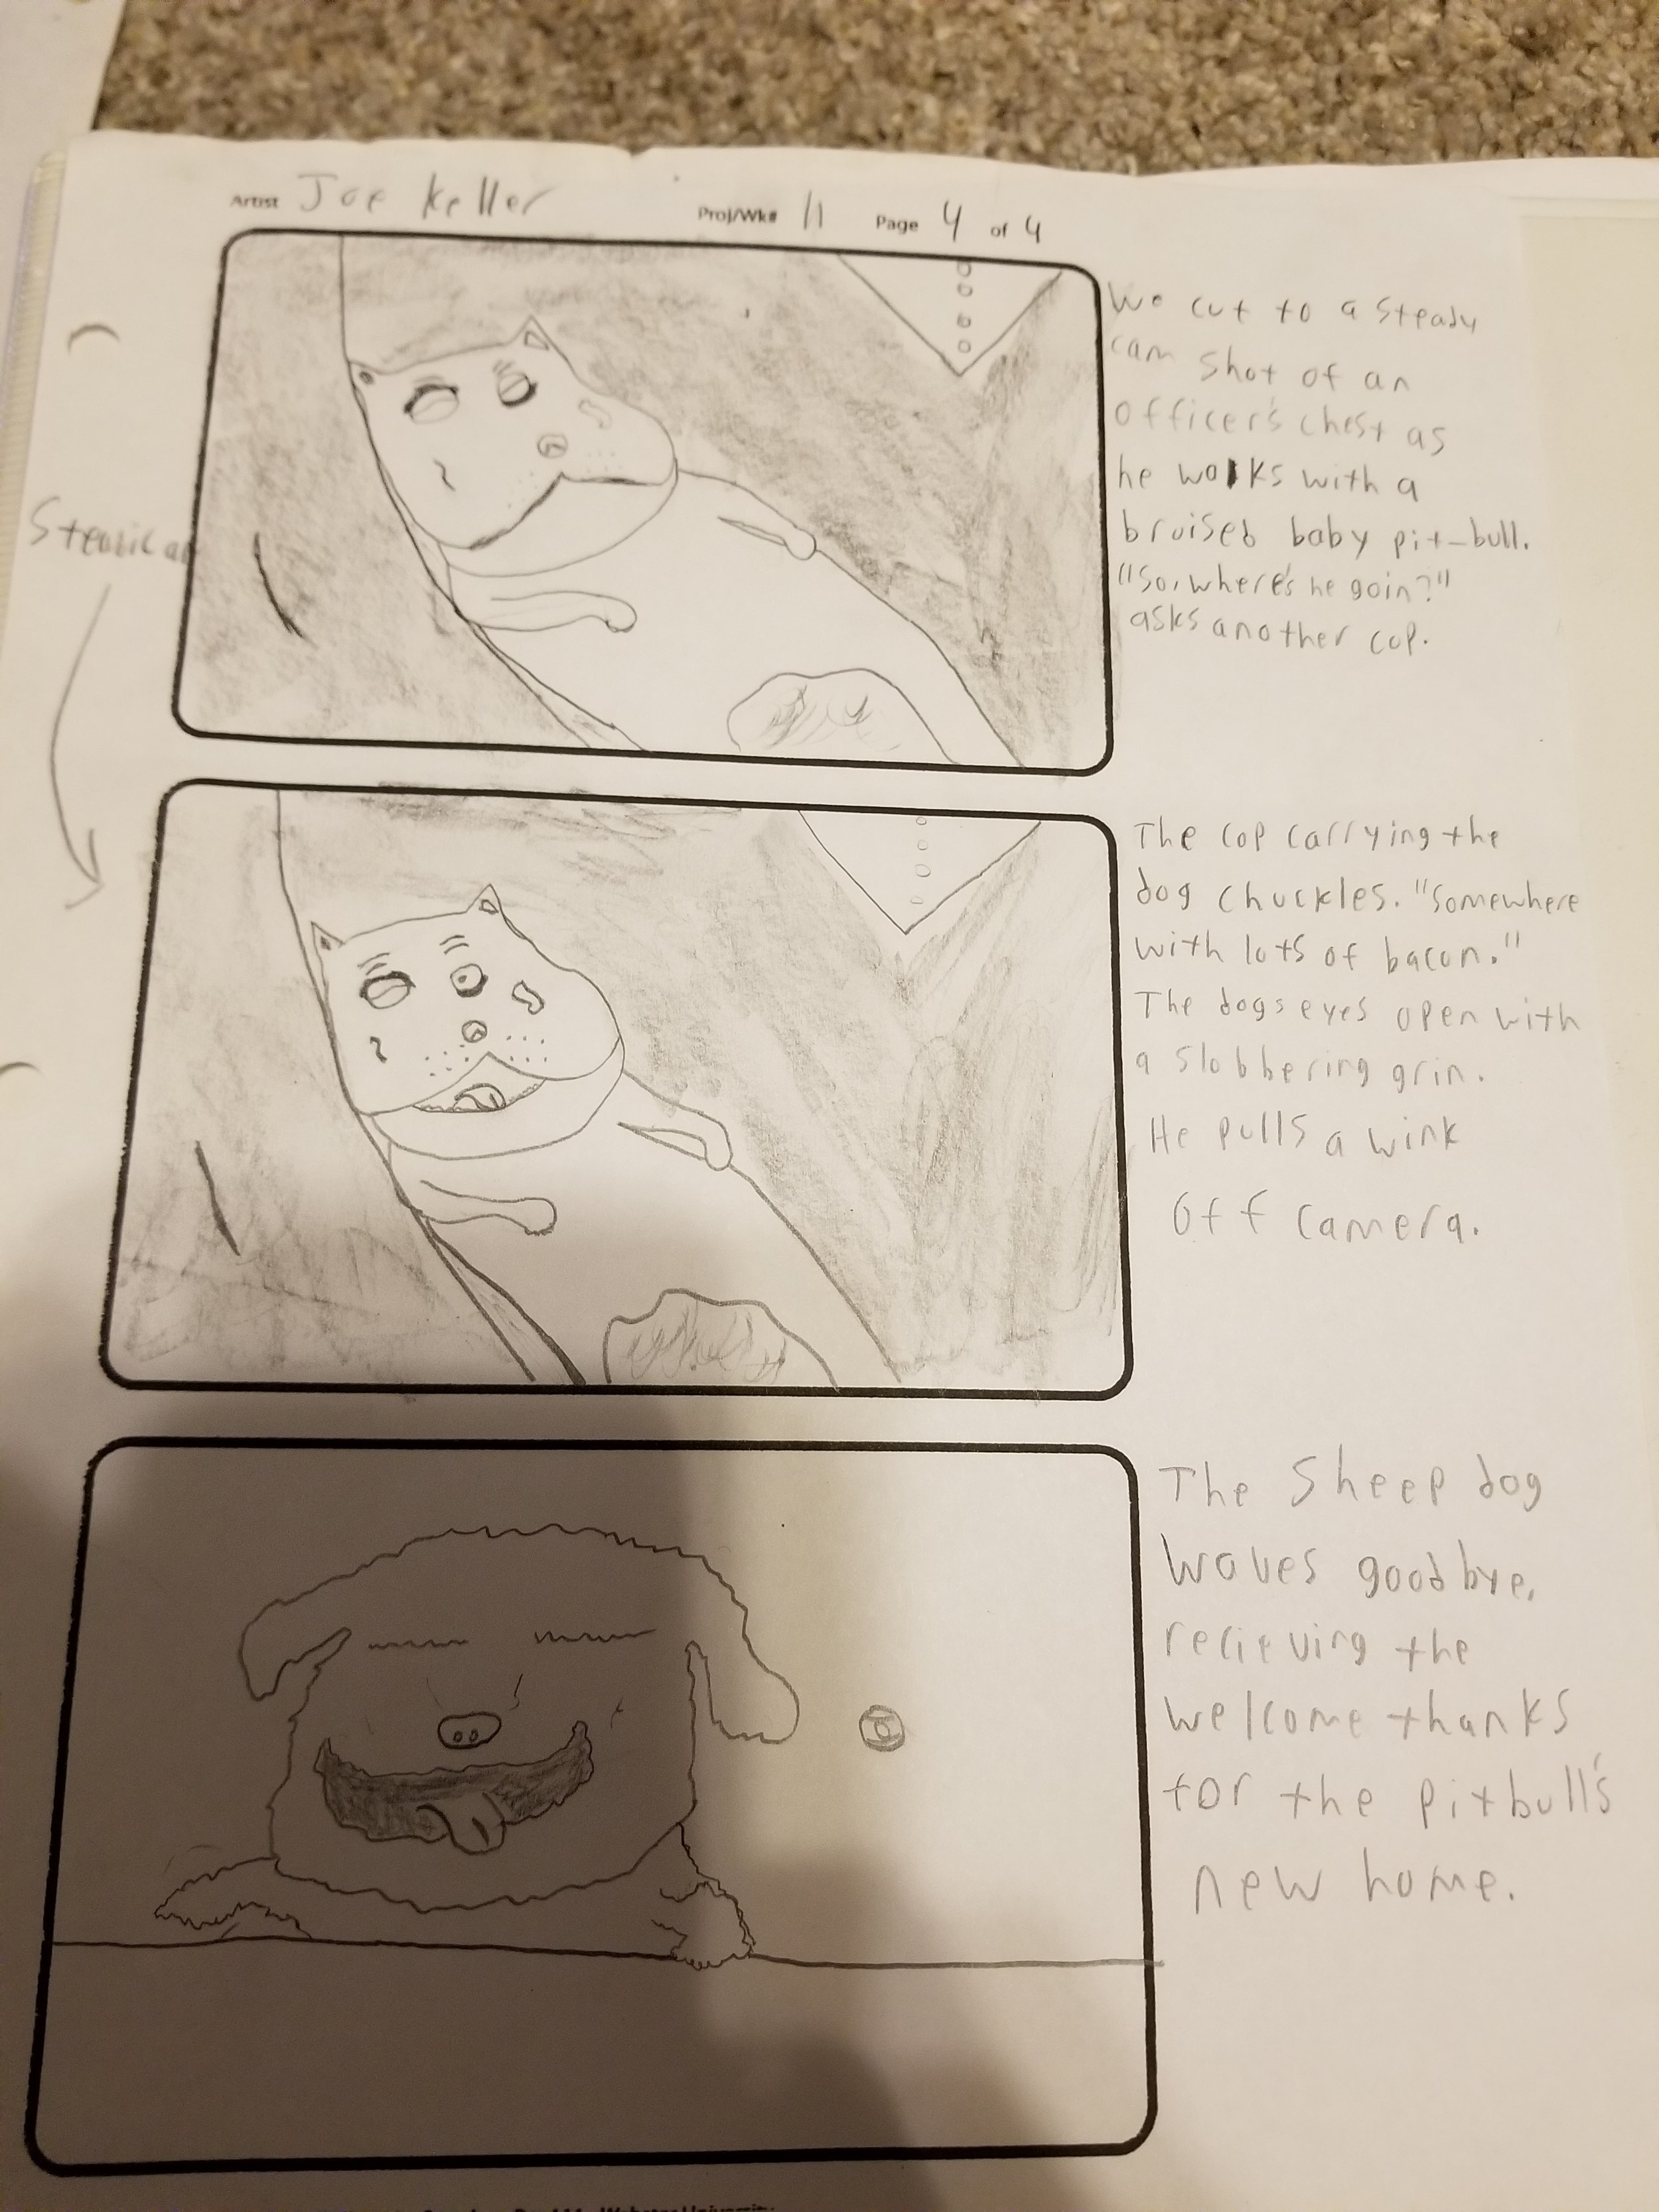 Artist Joe Keller Proj/Wk# 11 Page 4 of 4
We cut to a steady
cam shot of an
officer's chest as
he walks with a
bruised baby pit-bull.
"So, where's he goin?"
asks another cop.
Steadicam
The cop carrying the
dog chuckles. "Somewhere
with lots of bacon."
The dogs eyes open with
a slobbering grin.
He pulls a wink
Off camera.
The Sheep dog
waves goodbye,
recieving the
welcome thanks
for the pitbull's
new home.
Webster University